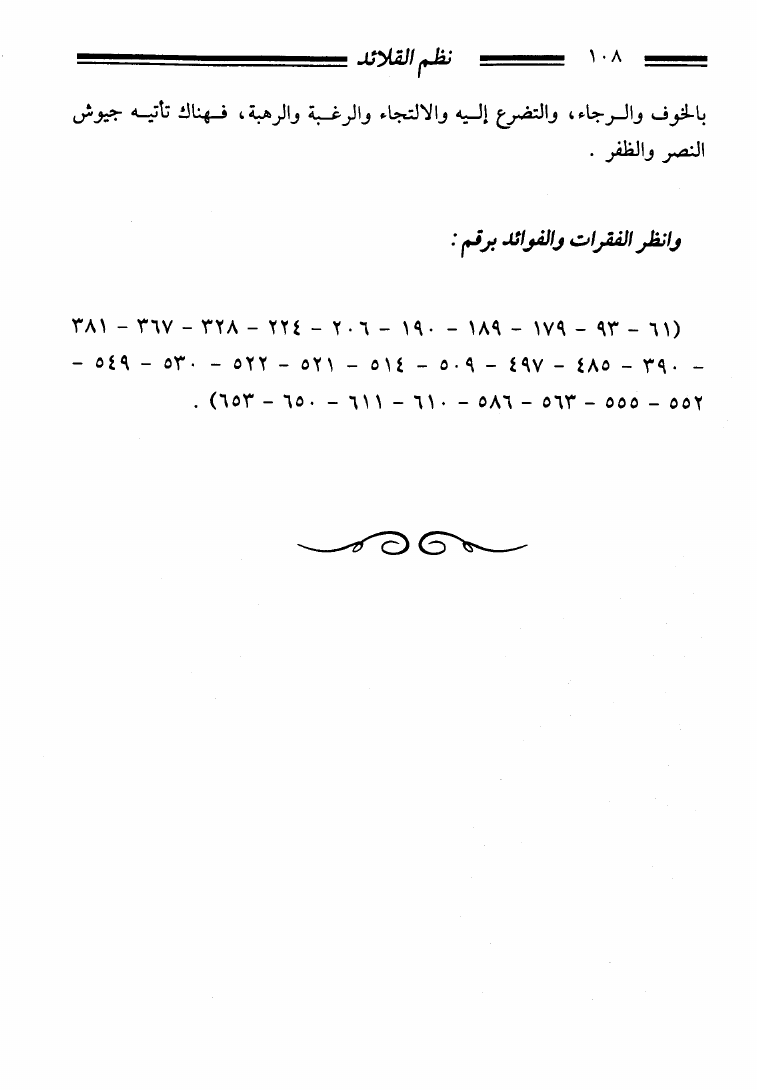 ١٠٨ نظم القلائد
بالخوف والرجاء، والتضرع إليه والالتجاء والرغبة والرهبة، فهناك تأتيه جيوش
النصر والظفر .
وانظر الفقرات والفوائد برقم :
(٦١ – ٩٣ – ١٧٩ – ١٨٩ – ١٩٠ – ٢٠٦ – ٢٢٤ – ٣٢٨ – ٣٦٧ – ٣٨١
– ٣٩٠ – ٤٨٥ – ٤٩٧ – ٥٠٩ – ٥١٤ – ٥٢١ – ٥٢٢ – ٥٣٠ – ٥٤٩ –
٥٥٢ – ٥٥٥ – ٥٦٣ – ٥٨٦ – ٦١٠ – ٦١١ – ٦٥٠ – ٦٥٣) .